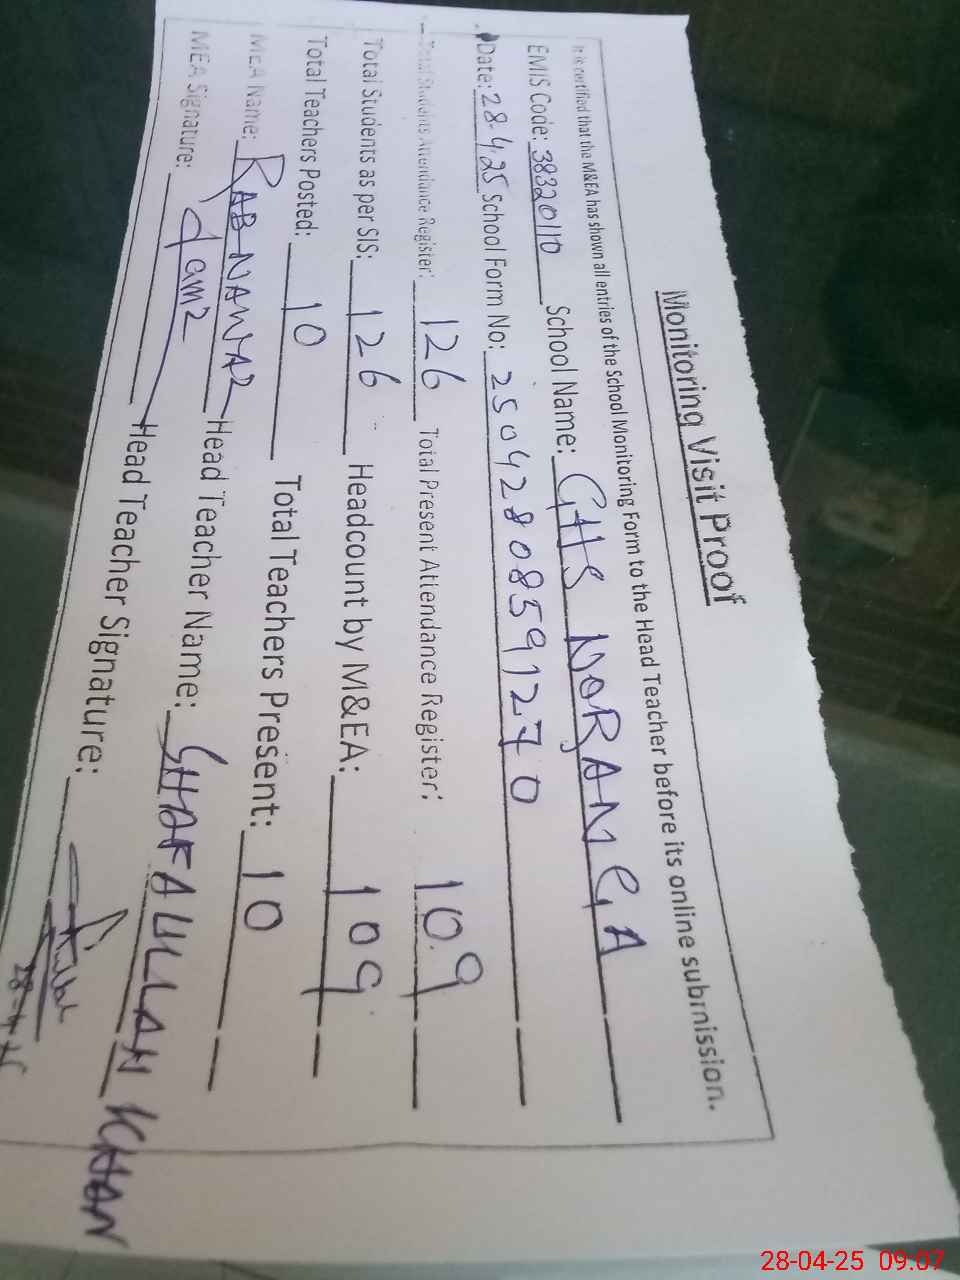 Monitoring Visit Proof
It is certified that the M&EA has shown all entries of the School Monitoring Form to the Head Teacher before its online submission.
EMIS Code: 38320110 School Name: GHS NORANGA
Date: 28-4-25 School Form No: 25042808591270
Total Students Attendance Register: 126 Total Present Attendance Register: 109
Total Students as per SIS: 126 Headcount by M&EA: 109
Total Teachers Posted: 10 Total Teachers Present: 10
MEA Name: RAB NAWAZ Head Teacher Name: SHAFAULLAH KHAN
MEA Signature: Head Teacher Signature:
28-4-25
28-04-25 09:07